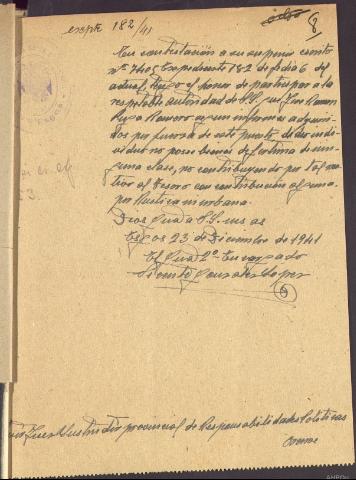 expte 182/41
8
En contestación a su superior escrito
nº 7405 Expediente 182 de fecha 6 del
actual, tengo el honor de participar a la
respetable autoridad de V.S. que José Ramon
Romero según informes adquiri-
dos por fuerza de este puesto, dicho indi-
viduo no posee bienes de fortuna de nin-
guna clase, no contribuyendo por tal mo-
tivo al Tesoro con contribución alguna
por Rustica ni urbana.
Dios guarde a V.S. muchos
23 de Diciembre de 1941
El Guardia 2º Encargado
Vicente Gonzalez Lopez
Juez Instructor provincial de Responsabilidades Politicas